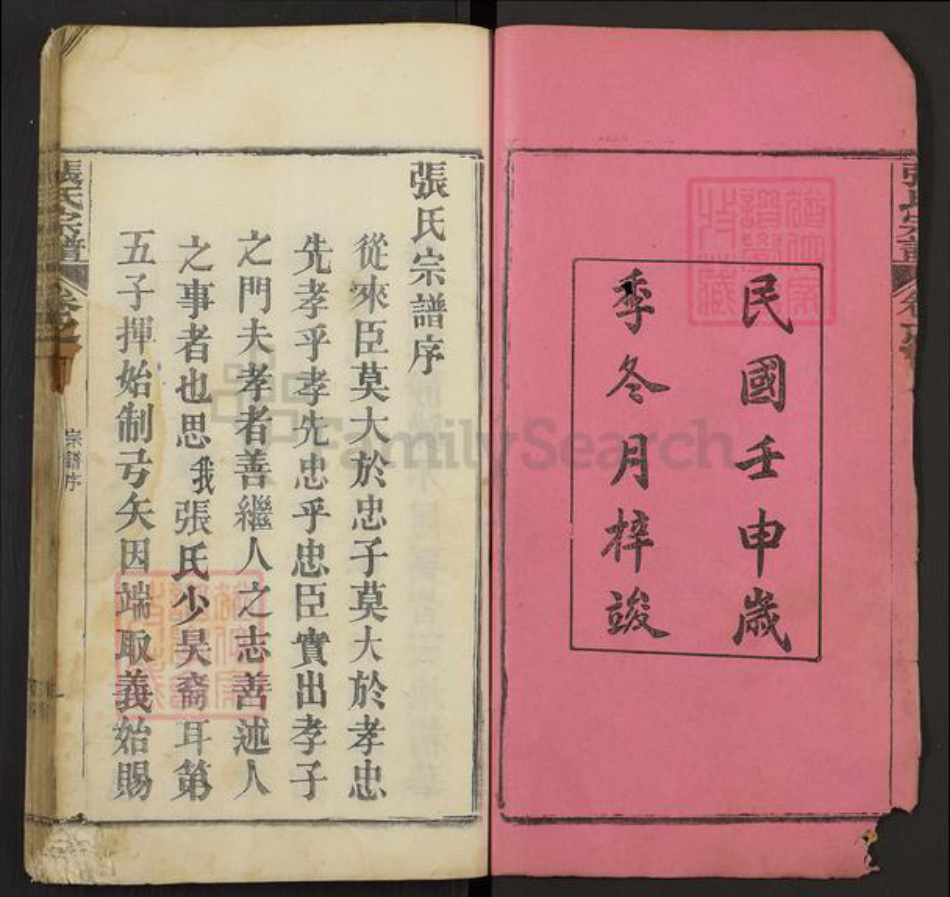 民國壬申歲
季冬月梓竣
張氏宗譜
張氏宗譜序
從來臣莫大於忠子莫大於孝忠
先孝乎孝先忠乎忠臣實出孝子
之門夫孝者善繼人之志善述人
之事者也思我張氏少昊裔耳第
五子揮始制弓矢因端取義始賜
張氏宗譜
卷之
宗譜序
FamilySearch